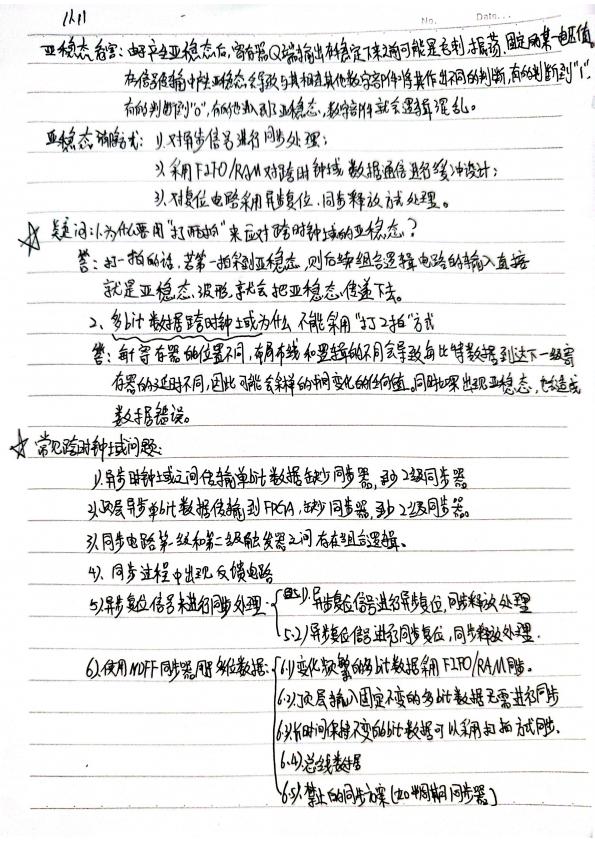 11.11
No.
Date.
亚稳态危害:由于产生亚稳态后,寄存器Q端输出在稳定下来之前可能是毛刺、振荡、固定的某一电压值。
在信号传输中产生亚稳态会导致与其相连其他数字部件将其作出不同的判断,有的判断到"1",
有的判断到"0",有的也进入到了亚稳态,数字部件就会逻辑混乱。
亚稳态消除方式: 1).对异步信号进行同步处理;
2).采用FIFO/RAM对跨时钟域数据通信进行缓冲设计;
3).对复位电路采用异步复位、同步释放方式处理。
疑问:1.为什么要用"打两拍"来应对跨时钟域的亚稳态?
答:打一拍的话,若第一拍采到亚稳态,则后续组合逻辑电路的输入直接
就是亚稳态波形,就会把亚稳态传递下去。
2、多bit数据跨时钟域为什么不能采用"打2拍"方式
答:每个寄存器的位置不同,布局布线和逻辑的不同会导致每比特数据到达下一级寄
存器的延时不同,因此可能会采样的中间变化的任何值。同时如果出现亚稳态,也会造成
数据错误。
常见跨时钟域问题:
1).异步时钟域之间传输单bit数据缺少同步器,至少2级同步器
2).顶层异步单bit数据传输到FPGA,缺少同步器,至少2级同步器。
3).同步电路第一级和第二级触发器之间存在组合逻辑。
4).同步过程中出现反馈电路
5).异步复位信号未进行同步处理.
5.1).异步复位信号进行异步复位,同步释放处理
5.2)异步复位信号进行同步复位,同步释放处理.
6).使用NDFF同步器同步多位数据:
6.1)变化频繁的多bit数据采用FIFO/RAM同步。
6.2)顶层输入固定不变的多bit数据无需进行同步
6.3)长时间保持不变的多bit数据可以采用打拍方式同步.
6.4)总线数据
6.5)禁止的同步方案(如半周期同步器)